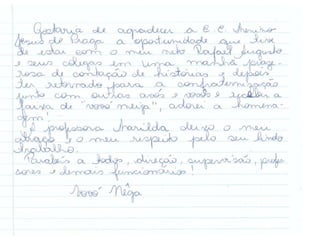 Gostaria de agradecer a E. C. Menino
Jesus de Praga a oportunidade que tive
de estar com o meu neto Rafael Augusto
e seus colegas em uma manhã praze-
rosa de contação de histórias e depois
ter retornado para a confraternização
junto com outras avós e avôs e receber a
faixa de "vovó meiga", adorei a homena-
gem!
À professora Marilda deixo o meu
abraço e o meu respeito pelo seu lindo
trabalho.
Parabéns a todos, direção, supervisão, profes
sores e demais funcionários!
Vovó Nêga